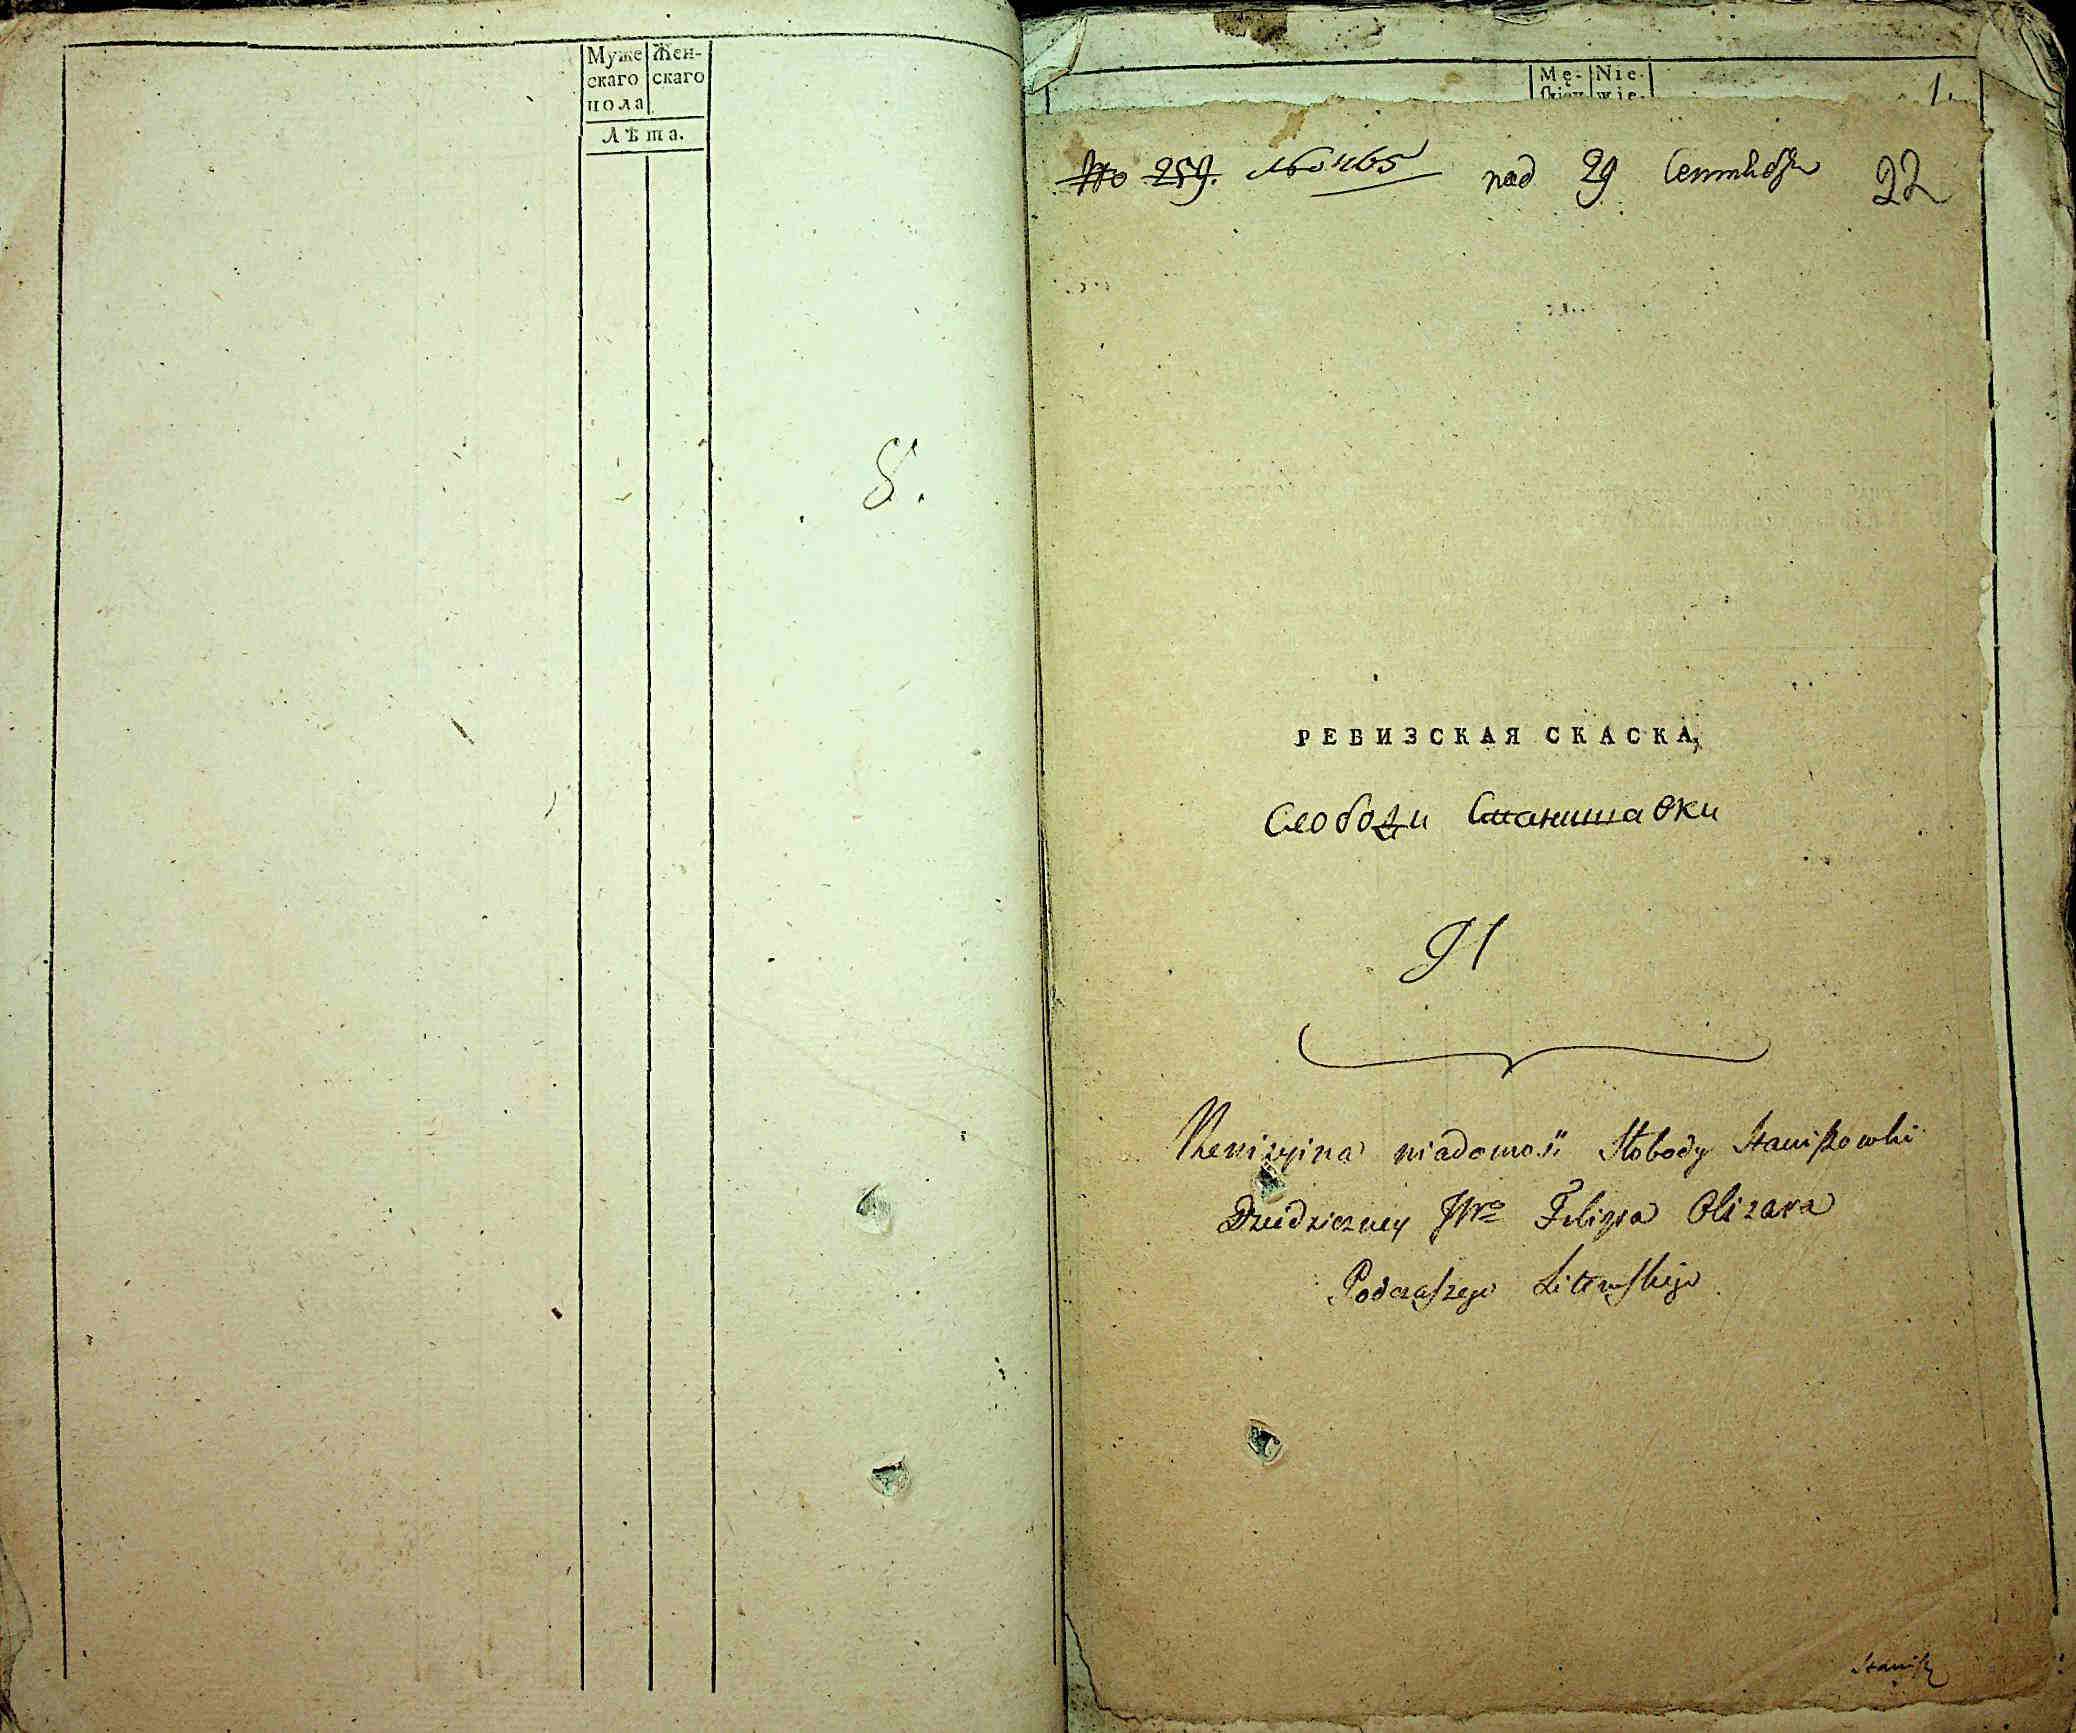 Муже Жен-
скаго скаго
пола
Лѣта.
8.
Mę- Nie-
wie-
1.
No 259. №465 pod 29 Септября 22
РЕВИЗСКАЯ СКАСКА,
Слободи Станишавки
И
Rewizyina wiadomość Słobody Staniszowki
Dziedziczney JWo Filipa Olizara
Podczaszego Litewskiego
Stanisz